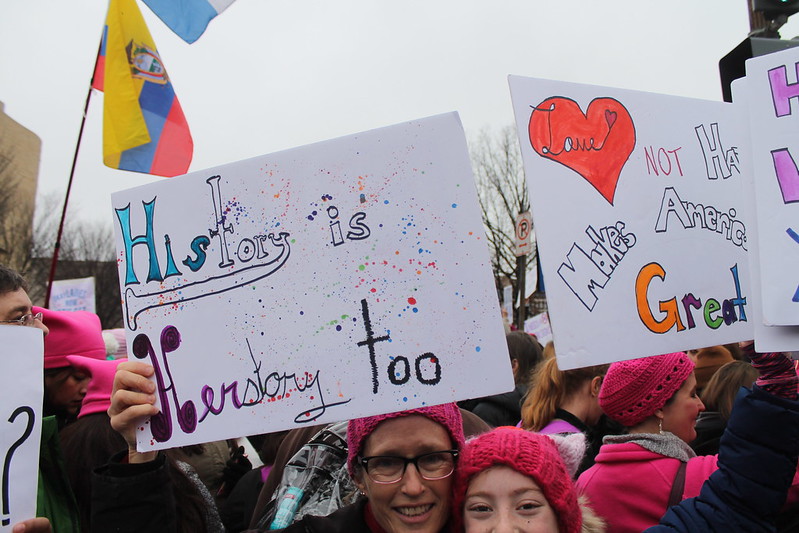 History is
Herstory too
Love NOT
Makes America
Great
?